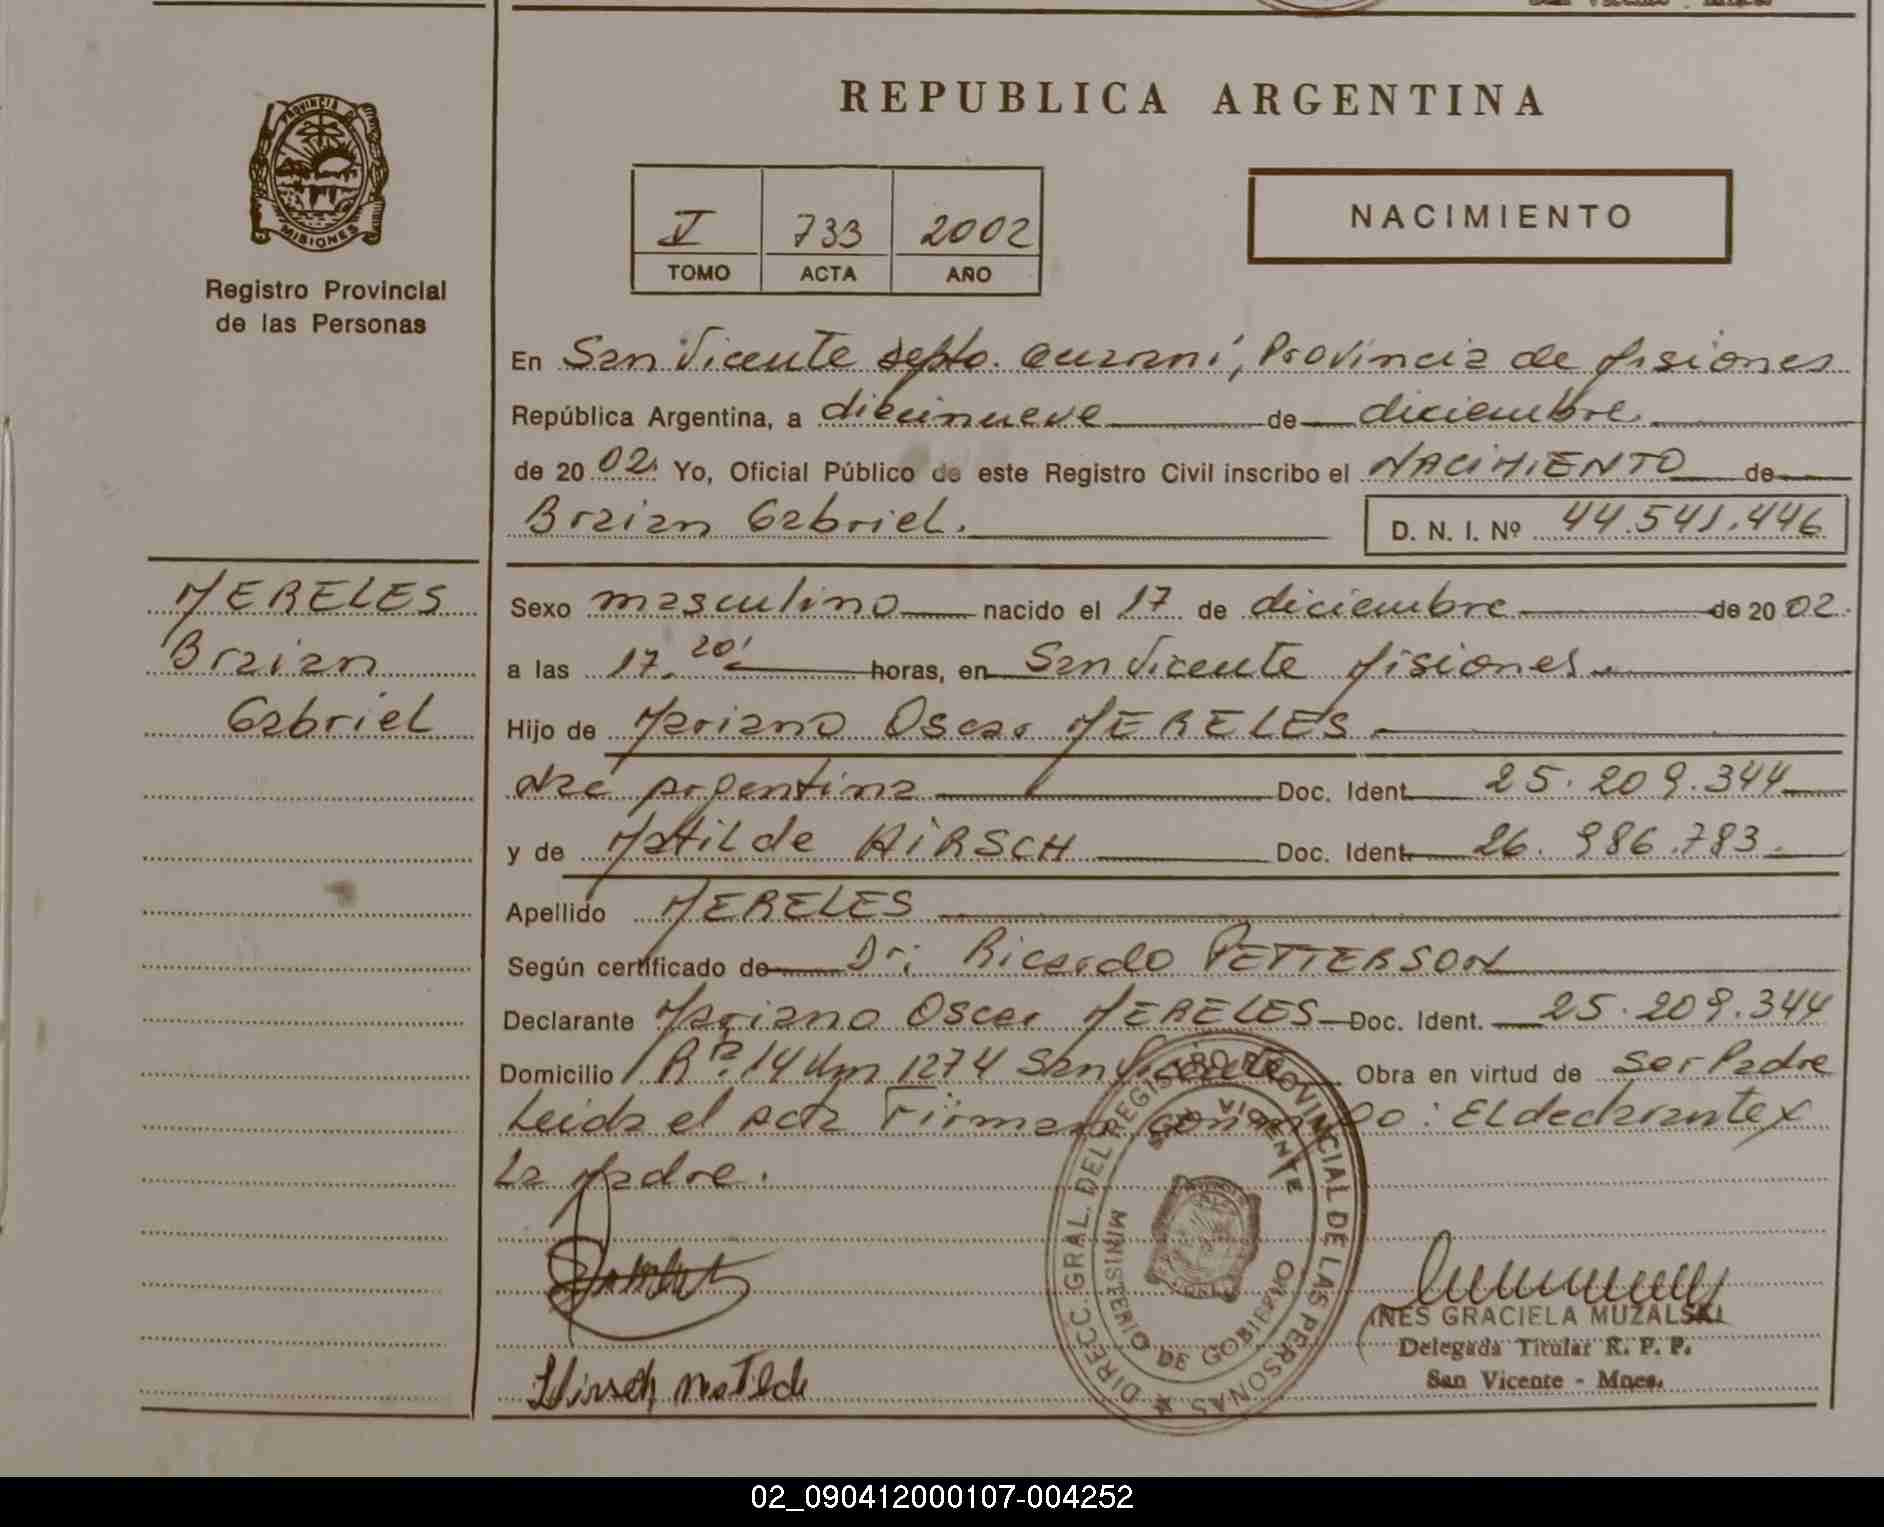 REPUBLICA ARGENTINA
PROVINCIA DE
MISIONES
Registro Provincial
de las Personas
V 733 2002
TOMO ACTA AÑO
NACIMIENTO
En San Vicente depto. Guaraní, Provincia de Misiones
República Argentina, a diecinueve de diciembre
de 2002. Yo, Oficial Público de este Registro Civil inscribo el NACIMIENTO de
Braian Gabriel. D. N. I. Nº 44.541.446
MERELES
Braian
Gabriel
Sexo masculino nacido el 17 de diciembre de 2002.
a las 17. 20' horas, en San Vicente Misiones.
Hijo de Mariano Oscar MERELES
Nac argentina Doc. Ident. 25.209.344
y de Matilde HIRSCH Doc. Ident. 26.986.783.
Apellido MERELES
Según certificado de Dr: Ricardo PETTERSON
Declarante Mariano Oscar MERELES Doc. Ident. 25.209.344
Domicilio Rª. 14 Km 1274 San Vicente Obra en virtud de ser Padre
Leida el acta Firman conmigo: El declarante y
La Madre.
DIRECC. GRAL. DEL REGISTRO PROVINCIAL DE LAS PERSONAS
SAN VICENTE
MINISTERIO DE GOBIERNO
Hirsch Matilde
INES GRACIELA MUZALSKI
Delegada Titular R. P. P.
San Vicente - Mnes.
02_090412000107-004252